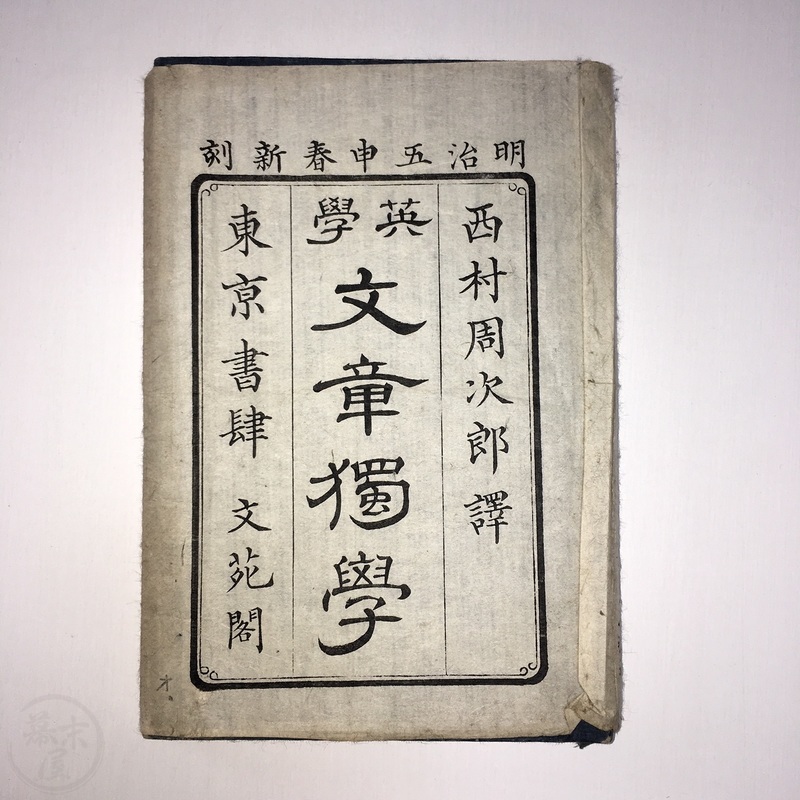 明治五申春新刻
西村周次郎譯
英學
文章獨學
東亰書肆 文苑閣
幕末屋